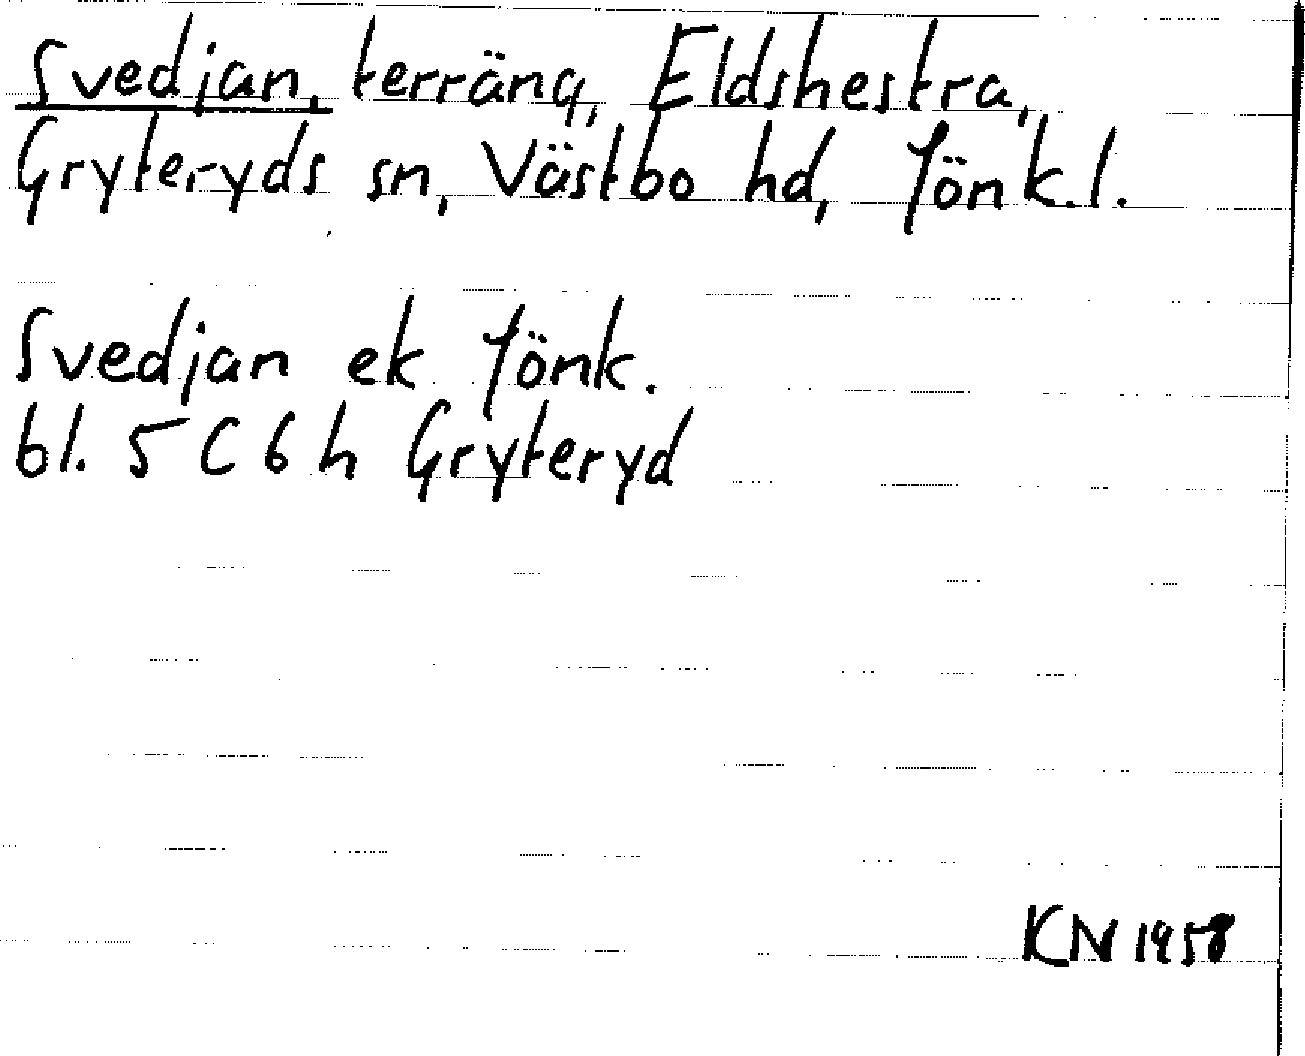 Svedjan, terräng, Eldshestra,
Gryteryds sn, Västbo hd, Jönk.l.
Svedjan ek Jönk.
bl. 5 C 6 h Gryteryd
KN 1958